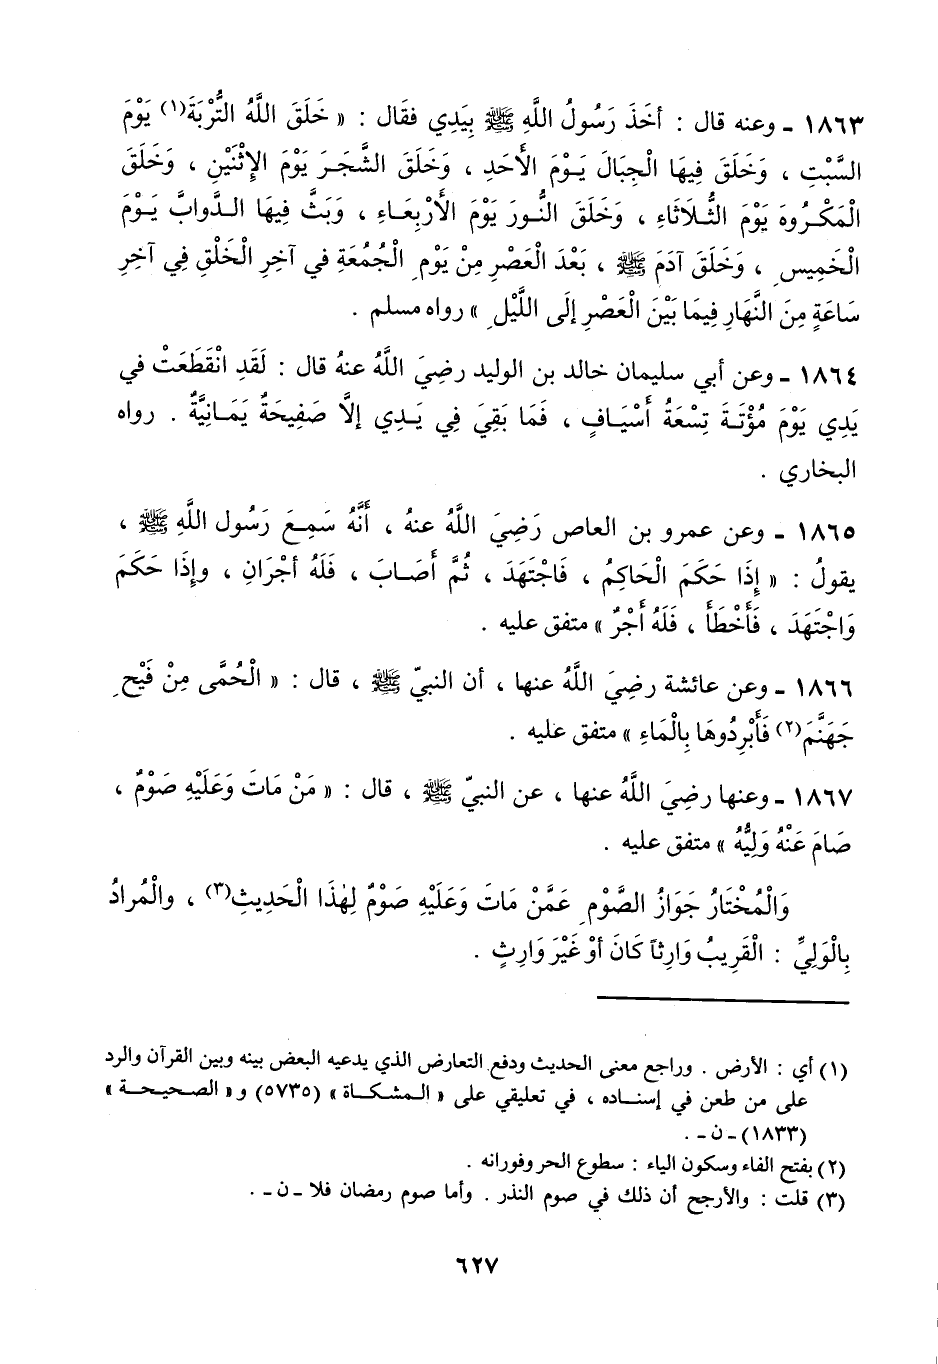 ١٨٦٣ ـ وعنه قال : أخَذَ رَسُولُ اللَّهِ ﷺ بِيَدِي فقَال : « خَلَقَ اللَّهُ التُّرْبَةَ(١) يَوْمَ
السَّبْتِ ، وَخَلَقَ فِيهَا الْجِبَالَ يَوْمَ الأَحَدِ ، وَخَلَقَ الشَّجَرَ يَوْمَ الإثْنَيْنِ ، وَخَلَقَ
الْمَكْرُوهَ يَوْمَ الثُّلَاثَاءِ ، وَخَلَقَ النُّورَ يَوْمَ الأَرْبِعَاءِ ، وَبَثَّ فِيهَا الدَّوابَّ يَوْمَ
الْخَمِيسِ ، وَخَلَقَ آدَمَ ﷺ ، بَعْدَ الْعَصْرِ مِنْ يَوْمِ الْجُمُعَةِ في آخِرِ الْخَلْقِ فِي آخِرِ
سَاعَةٍ مِنَ النَّهَارِ فِيمَا بَيْنَ الْعَصْرِ إلَى اللَّيْلِ » رواه مسلم .
١٨٦٤ ـ وعن أبي سليمان خالد بن الوليد رضِيَ اللَّهُ عنهُ قال : لَقَدِ انْقَطَعَتْ في
يَدِي يَوْمَ مُؤْتَةَ تِسْعَةُ أَسْيَافٍ ، فَمَا بَقِيَ فِي يَدِي إلَّا صَفِيحَةٌ يَمَانِيَّةٌ . رواه
البخاري .
١٨٦٥ ـ وعن عمرو بن العاص رَضِيَ اللَّهُ عنهُ ، أَنَّهُ سَمِعَ رَسُول اللَّهِ ﷺ ،
يقولُ : « إِذَا حَكَمَ الْحَاكِمُ ، فَاجْتَهَدَ ، ثُمَّ أَصَابَ ، فَلَهُ أجْرَانِ ، وإِذَا حَكَمَ
وَاجْتَهَدَ ، فَأَخْطَأَ ، فَلَهُ أَجْرٌ » متفق عليه .
١٨٦٦ ـ وعن عائشة رضِيَ اللَّهُ عنها ، أن النبيّ ﷺ ، قال : « الْحُمَّى مِنْ فَيْحِ
جَهَنَّمَ(٢) فَأَبْرِدُوهَا بِالْمَاءِ » متفق عليه .
١٨٦٧ ـ وعنها رضِيَ اللَّهُ عنها ، عن النبيّ ﷺ ، قال : « مَنْ مَاتَ وَعَلَيْهِ صَوْمٌ ،
صَامَ عَنْهُ وَلِيُّهُ » متفق عليه .
وَالْمُخْتَارُ جَوَازُ الصَّوْمِ عَمَّنْ مَاتَ وَعَلَيْهِ صَوْمٌ لِهٰذَا الْحَدِيثِ(٣) ، والْمُرادُ
بِالْوَلِيِّ : الْقَرِيبُ وَارِثاً كَانَ أوْ غَيْرَ وَارِثٍ .
(١) أي : الأرض . وراجع معنى الحديث ودفع التعارض الذي يدعيه البعض بينه وبين القرآن والرد
على من طعن في إسناده ، في تعليقي على « المشكاة » (٥٧٣٥) و« الصحيحة »
(١٨٣٣) ـ ن ـ .
(٢) بفتح الفاء وسكون الياء : سطوع الحر وفورانه .
(٣) قلت : والأرجح أن ذلك في صوم النذر . وأما صوم رمضان فلا ـ ن ـ .
٦٢٧